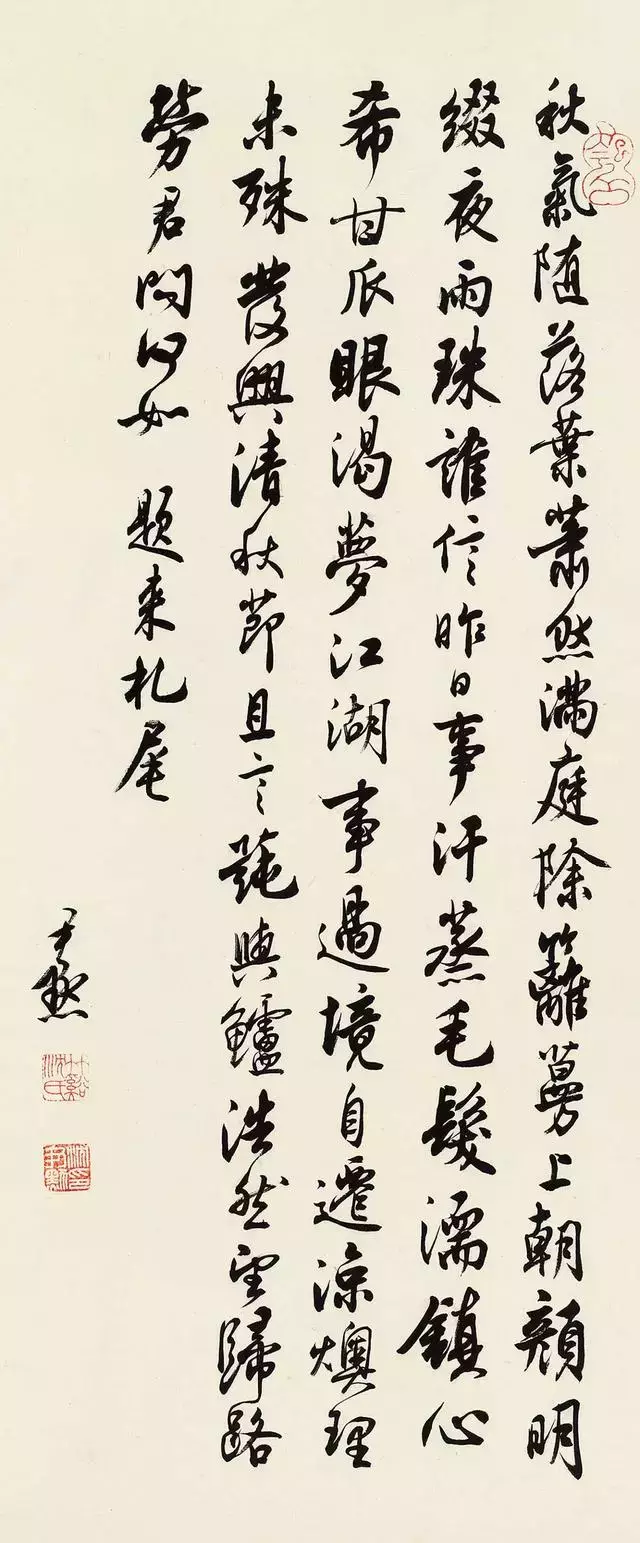 秋氣随落葉蕭然滿庭除籬蔓上朝顏明
綴夜雨珠誰信昨日事汗蒸毛髮濡鎮心
希甘瓜眼渴夢江湖事過境自遷涼燠理
未殊發興清秋節且言莼與鱸浩然望歸路
勞君問何如 題来札尾
尹默
竹谿沈氏